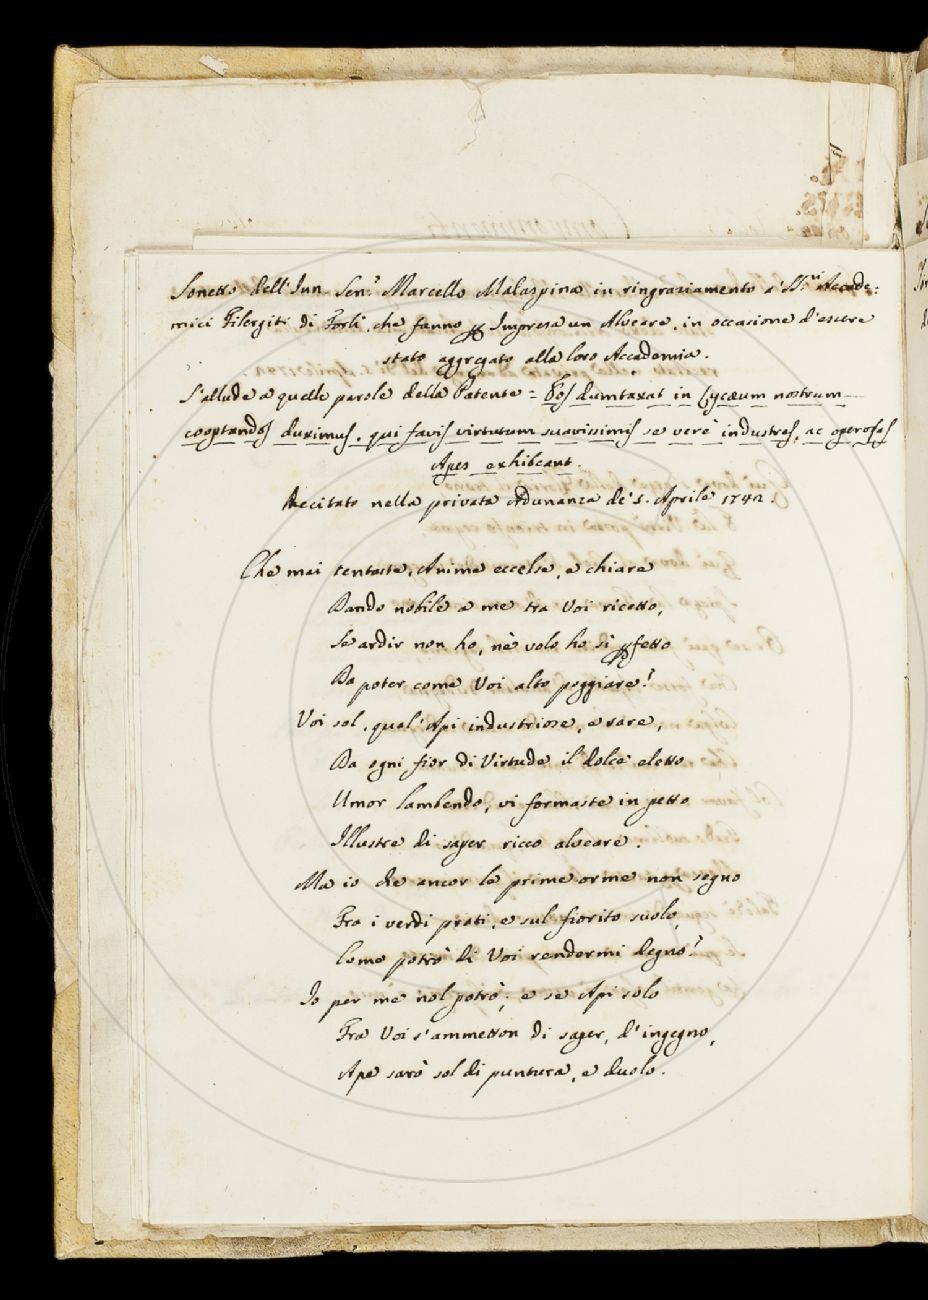 Sonetto dell'Jun Sen.r Marcello Malaspina in ringraziamento a' SS.ri Accade:
mici Filergiti di Forlì, che fanno p Impresa un Alveare, in occasione d'essere
stato aggregato alla loro Accademia.
S'allude a quelle parole della Patente = Eos dumtaxat in Lycæum nostrum
cooptandos duximus, qui favis virtutum suavissimis se verè industres, ac operosas
Apes exhibeant.
Recitato nella privata Adunanza de' 5. Aprile 1742.
Che mai tentaste, Anime eccelse, e chiare
Dando nobile a me tra Voi ricetto,
Se ardir non ho, nè volo ho sì pfetto
Da poter come Voi alto poggiare?
Voi sol, qual' Api industriose, e rare,
Da ogni fior di Virtude il dolce eletto
Umor lambendo, vi formaste in petto
Illustre di saper ricco alveare.
Ma io che ancor le prime orme non segno
Fra i verdi prati, e sul fiorito suolo,
Come potrò di Voi rendermi degno?
Io per me nol potrò; e se Api solo
Fra Voi s'ammetton di saper, d'ingegno,
Ape sarò sol di puntura, e duolo.